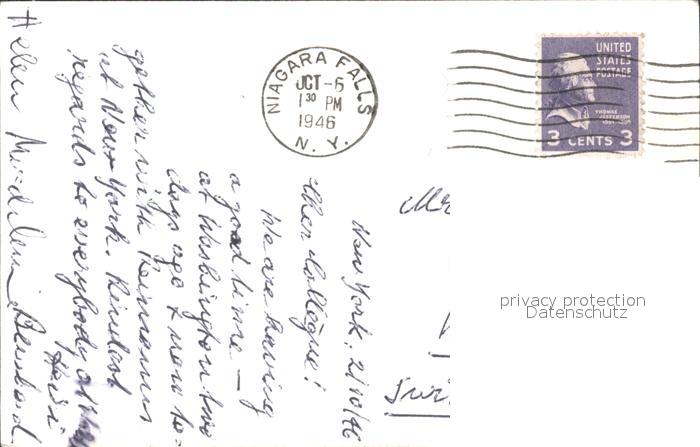 NIAGARA FALLS
OCT-6
1 30 PM
1946
N. Y.
UNITED
STATES
POSTAGE
THOMAS
JEFFERSON
3 CENTS 3
New York, 2/10/46
Cher Collègue!
We are having
a good time —
at Washington two
days ago & now to=
gether with
at New York. Kindest
regards to everybody
Helen
Mr
privacy protection
Datenschutz